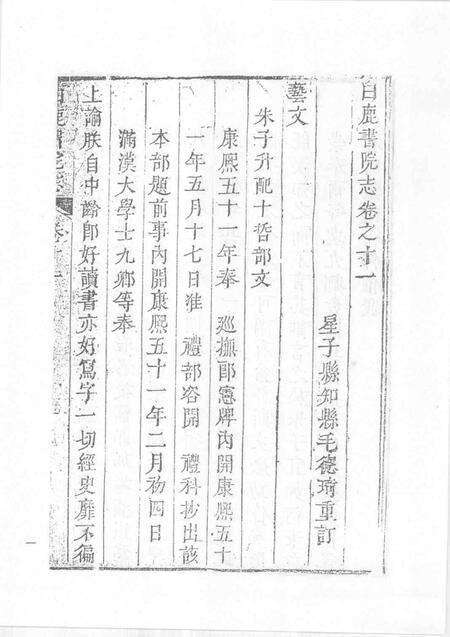 白鹿書院志卷之十一
星子縣知縣毛德琦重訂
藝文
朱子升配十哲部文
康熙五十一年奉　巡撫郎憲牌內開康熙五十
一年五月十七日准　禮部咨開　禮科抄出該
本部題前事內開康熙五十一年二月初四日
滿漢大學士九卿等奉
上諭朕自中齡即好讀書亦好寫字一切經史靡不徧